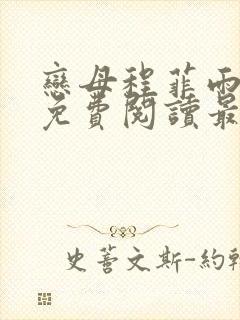 戀母程菲雨
免費閱讀最
史蒂文斯-約翰